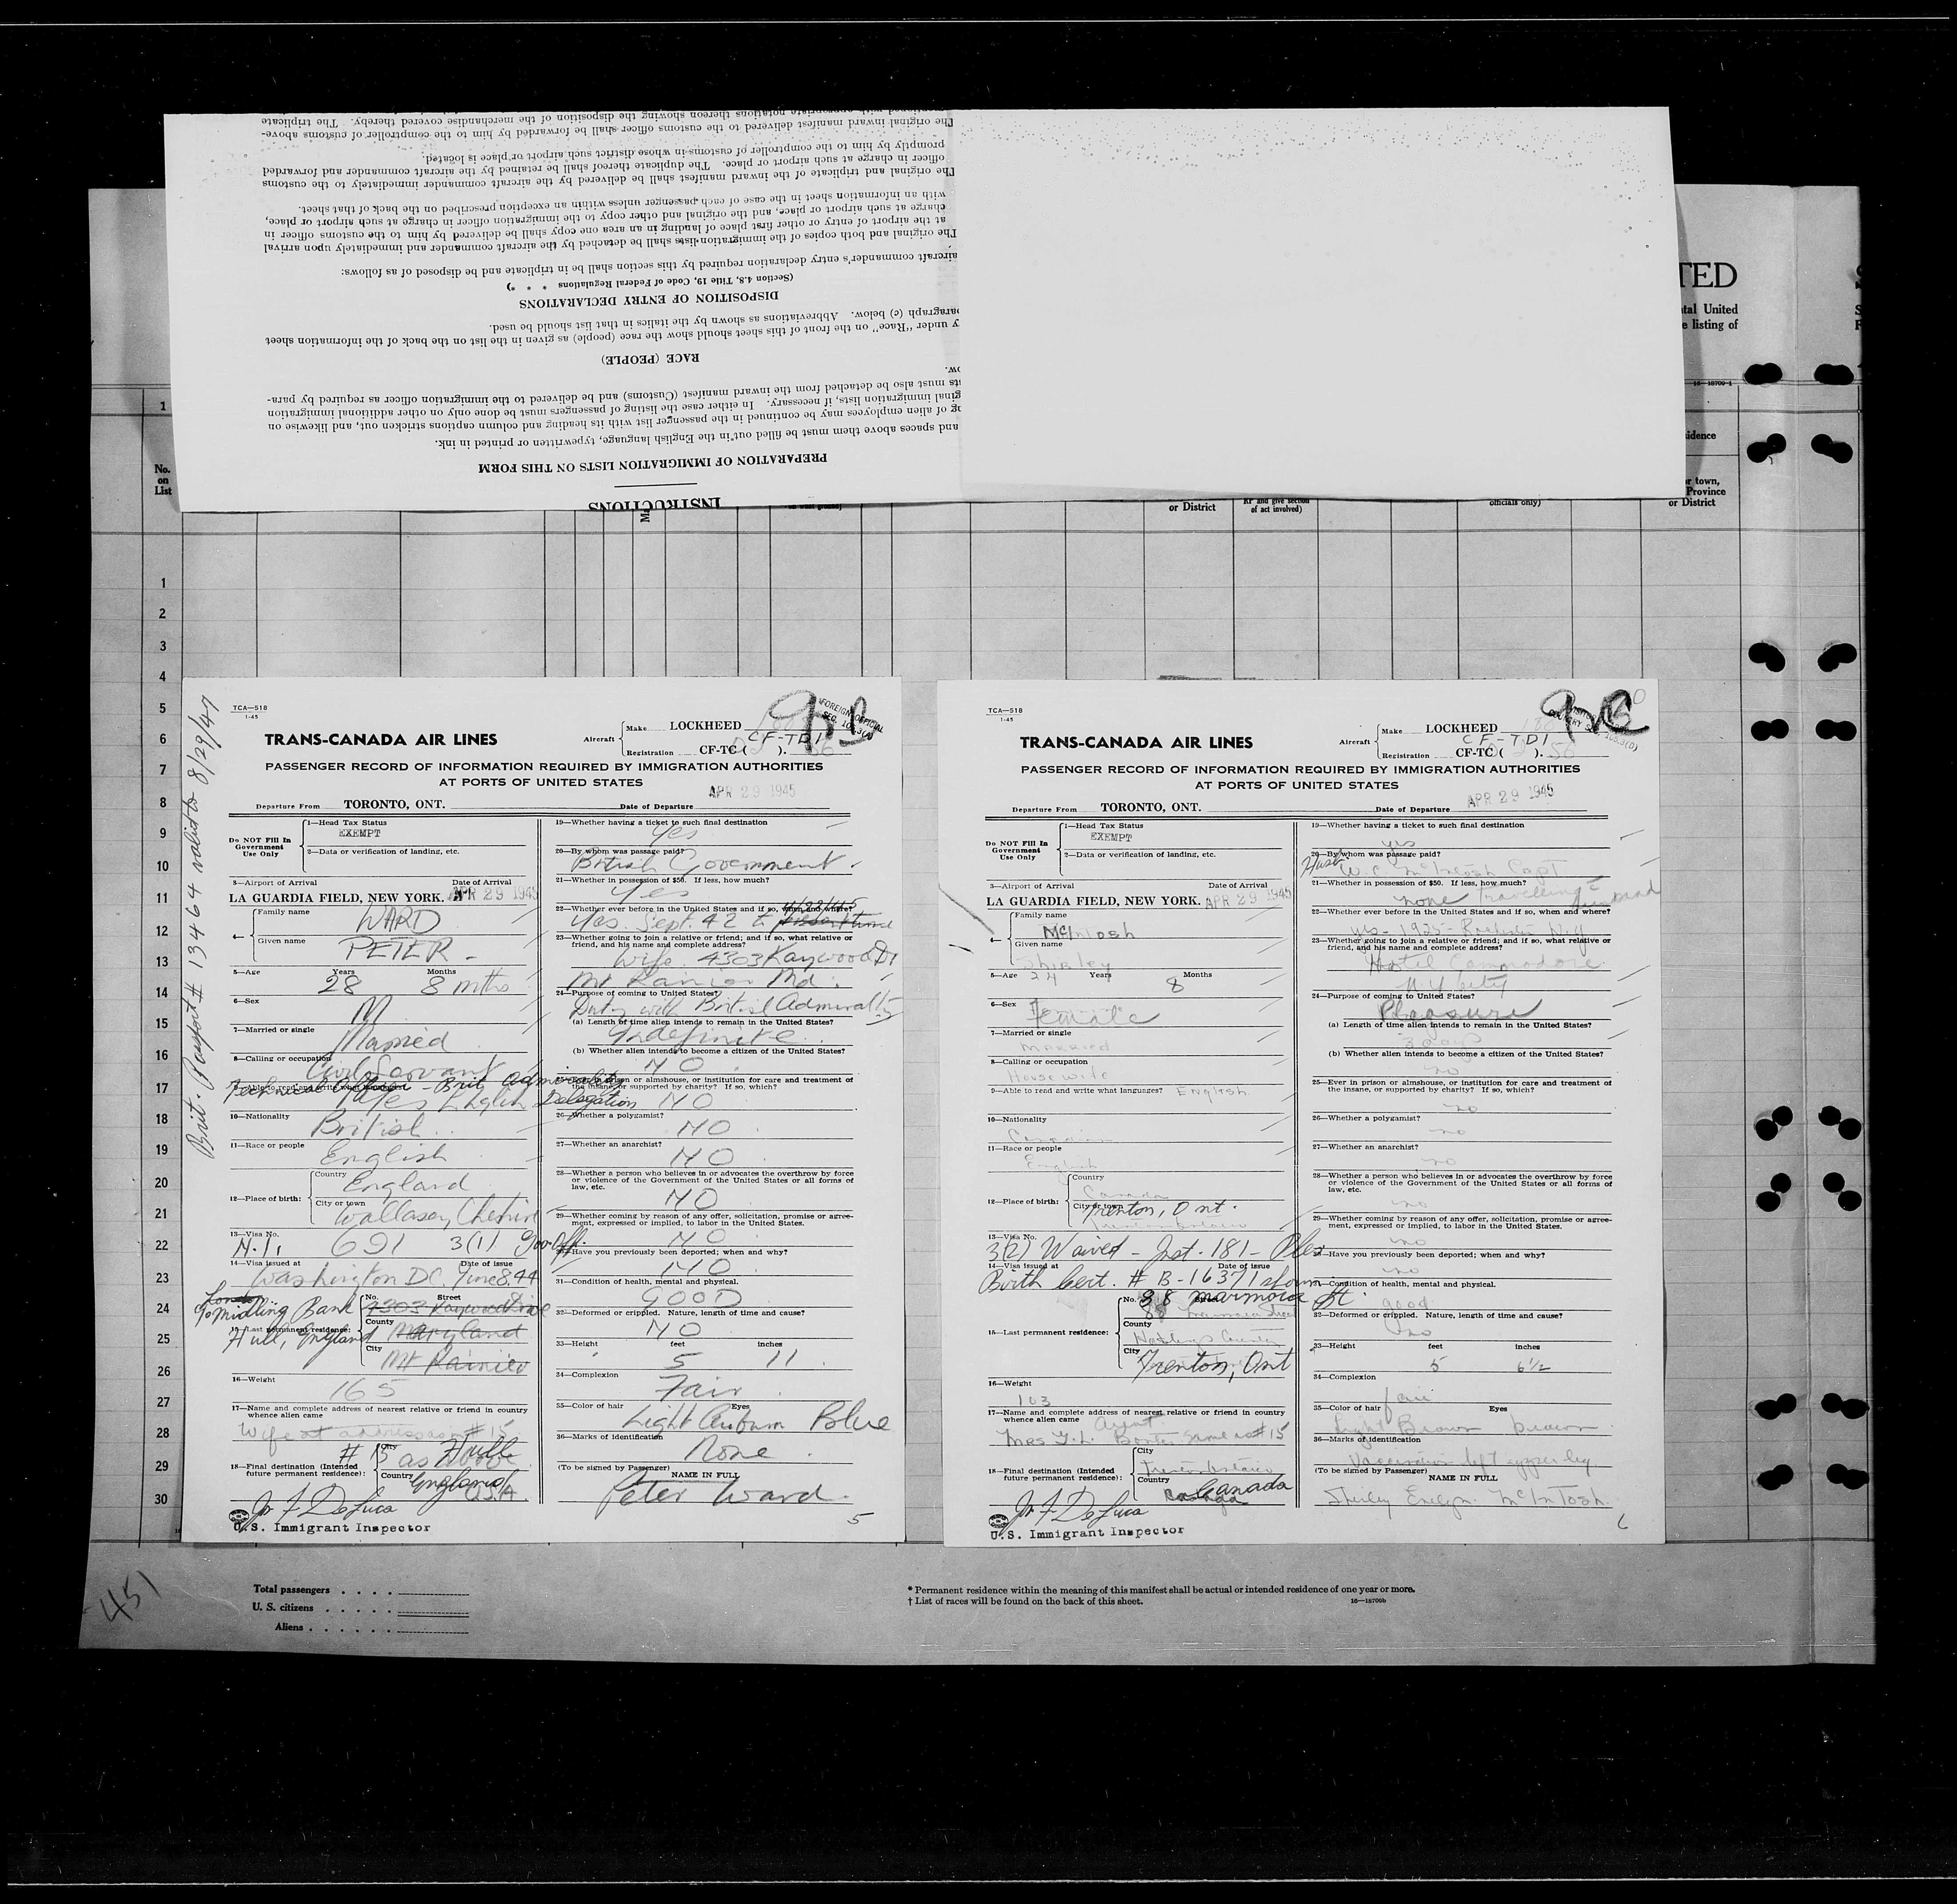 mentioned with appropriate notations thereon showing the disposition of the merchandise covered thereby. The triplicate
The original inward manifest delivered to the customs officer shall be forwarded by him to the comptroller of customs above-
promptly by him to the comptroller of customs in whose district such airport or place is located.
officer in charge at such airport or place. The duplicate thereof shall be retained by the aircraft commander and forwarded
The original and triplicate of the inward manifest shall be delivered by the aircraft commander immediately to the customs
with an information sheet in the case of each passenger unless within an exception prescribed on the back of that sheet.
charge at such airport or place, and the original and other copy to the immigration officer in charge at such airport or place,
at the airport of entry or other first place of landing in an area one copy shall be delivered by him to the customs officer in
The original and both copies of the immigration lists shall be detached by the aircraft commander and immediately upon arrival
aircraft commander's entry declaration required by this section shall be in triplicate and be disposed of as follows:
(Section 4.8, Title 19, Code of Federal Regulations * * *)
DISPOSITION OF ENTRY DECLARATIONS
paragraph (c) below. Abbreviations as shown by the italics in that list should be used.
y under "Race" on the front of this sheet should show the race (people) as given in the list on the back of the information sheet
RACE (PEOPLE)
ow.
ts must also be detached from the inward manifest (Customs) and be delivered to the immigration officer as required by para-
ginal immigration lists, if necessary. In either case the listing of passengers must be done only on other additional immigration
g of alien employees may be continued in the passenger list with its heading and column captions stricken out, and likewise on
and spaces above them must be filled out in the English language, typewritten or printed in ink.
PREPARATION OF IMMIGRATION LISTS ON THIS FORM
INSTRUCTIONS
TED
ntal United
e listing of
16—18709-1
idence
or town,
Province
or District
No.
on
List
or District
RP and give section
of act involved)
officials only)
1
1
2
3
4
5
6
7
8
9
10
11
12
13
14
15
16
17
18
19
20
21
22
23
24
25
26
27
28
29
30
Brit. Passport # 13464 valid to 8/29/47
TCA—518
1-45
TRANS-CANADA AIR LINES
Aircraft
Make LOCKHEED
CF-TDI
Registration CF-TC ( ).
FOREIGN OFFICIAL
PASSENGER RECORD OF INFORMATION REQUIRED BY IMMIGRATION AUTHORITIES
AT PORTS OF UNITED STATES
APR 29 1945
Departure From TORONTO, ONT. Date of Departure
Do NOT Fill In
Government
Use Only
1—Head Tax Status
EXEMPT
2—Data or verification of landing, etc.
3—Airport of Arrival Date of Arrival
LA GUARDIA FIELD, NEW YORK. APR 29 1945
4—
Family name
WARD
Given name
PETER
5—Age Years Months
28 8 mths
6—Sex
M
7—Married or single
Married
8—Calling or occupation
Civil Servant
Technical Officer - Brit. Admiralty Delegation
Yes English
10—Nationality
British
11—Race or people
English
12—Place of birth:
Country
England
City or town
Wallasey Cheshire
13—Visa No.
N.I. 691 3(1) Gov. Off.
14—Visa issued at Date of issue
Washington DC. June 8.44
London
c/o Midling Bank
Hull, England
15—Last permanent residence:
No. Street
4303 Kaywood Drive
County
Maryland
City
Mt Rainier
16—Weight
165
17—Name and complete address of nearest relative or friend in country
whence alien came
Wife at address as in #15
18—Final destination (Intended
future permanent residence):
City
# 15 as above Hull
Country
England
USA
Jn F DeLuca
U.S. Immigrant Inspector
19—Whether having a ticket to such final destination
Yes
20—By whom was passage paid?
British Government
21—Whether in possession of $50. If less, how much?
Yes
22—Whether ever before in the United States and if so, when and where?
Yes. Sept. 42 to present time 4/22/45
23—Whether going to join a relative or friend; and if so, what relative or
friend, and his name and complete address?
Wife 4303 Kaywood Dr
Mt Rainier Md.
24—Purpose of coming to United States?
Duty with British Admiralty
(a) Length of time alien intends to remain in the United States?
Indefinite
(b) Whether alien intends to become a citizen of the United States?
NO
25—Ever in prison or almshouse, or institution for care and treatment of
the insane, or supported by charity? If so, which?
NO
26—Whether a polygamist?
NO
27—Whether an anarchist?
NO
28—Whether a person who believes in or advocates the overthrow by force
or violence of the Government of the United States or all forms of
law, etc.
NO
29—Whether coming by reason of any offer, solicitation, promise or agree-
ment, expressed or implied, to labor in the United States.
NO
30—Have you previously been deported; when and why?
NO
31—Condition of health, mental and physical.
GOOD
32—Deformed or crippled. Nature, length of time and cause?
NO
33—Height feet inches
5 11
34—Complexion
Fair
35—Color of hair Eyes
Light Auburn Blue
36—Marks of identification
None
(To be signed by Passenger) NAME IN FULL
Peter Ward.
5
TCA—518
1-45
TRANS-CANADA AIR LINES
Aircraft
Make LOCKHEED
CF-TDI
Registration CF-TC ( ).
PASSENGER RECORD OF INFORMATION REQUIRED BY IMMIGRATION AUTHORITIES
AT PORTS OF UNITED STATES
APR 29 1945
Departure From TORONTO, ONT. Date of Departure
Do NOT Fill In
Government
Use Only
1—Head Tax Status
EXEMPT
2—Data or verification of landing, etc.
3—Airport of Arrival Date of Arrival
LA GUARDIA FIELD, NEW YORK. APR 29 1945
4—
Family name
McIntosh
Given name
Shirley
5—Age Years Months
24 8
6—Sex
Female
7—Married or single
Married
8—Calling or occupation
Housewife
9—Able to read and write what languages? English
10—Nationality
Canadian
11—Race or people
English
12—Place of birth:
Country
Canada
City or town
Trenton, Ont.
13—Visa No.
3(2) Waived - Inst. 181 -
14—Visa issued at Date of issue
Birth Cert. # B-16371 shown
15—Last permanent residence:
No. Street
38 Marmora St.
County
Hastings County
City
Trenton, Ont
16—Weight
103
17—Name and complete address of nearest relative or friend in country
whence alien came
Aunt
Mrs same as #15
18—Final destination (Intended
future permanent residence):
City
Trenton Ontario
Country
Canada
Jn F DeLuca
U.S. Immigrant Inspector
19—Whether having a ticket to such final destination
yes
20—By whom was passage paid?
Husb W.C. McIntosh Capt
21—Whether in possession of $50. If less, how much?
none Travelling c husband
22—Whether ever before in the United States and if so, when and where?
yes - 1925 - Rochester N.Y.
23—Whether going to join a relative or friend; and if so, what relative or
friend, and his name and complete address?
Hotel Commodore
N.Y. City
24—Purpose of coming to United States?
Pleasure
(a) Length of time alien intends to remain in the United States?
3 days
(b) Whether alien intends to become a citizen of the United States?
no
25—Ever in prison or almshouse, or institution for care and treatment of
the insane, or supported by charity? If so, which?
no
26—Whether a polygamist?
no
27—Whether an anarchist?
no
28—Whether a person who believes in or advocates the overthrow by force
or violence of the Government of the United States or all forms of
law, etc.
no
29—Whether coming by reason of any offer, solicitation, promise or agree-
ment, expressed or implied, to labor in the United States.
no
30—Have you previously been deported; when and why?
no
31—Condition of health, mental and physical.
good
32—Deformed or crippled. Nature, length of time and cause?
no
33—Height feet inches
5 6½
34—Complexion
fair
35—Color of hair Eyes
Light Brown brown
36—Marks of identification
Vaccination left upper leg
(To be signed by Passenger) NAME IN FULL
Shirley Evelyn McIntosh.
6
451
Total passengers
U. S. citizens
Aliens
* Permanent residence within the meaning of this manifest shall be actual or intended residence of one year or more.
† List of races will be found on the back of this sheet.
16—18709b